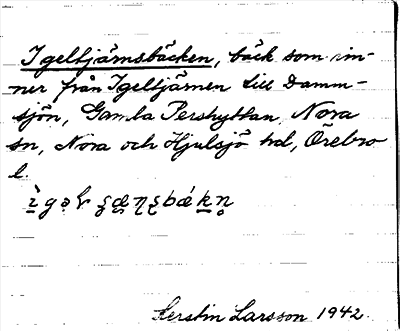 Igeltjärnsbäcken, bäck som rin-
ner från Igeltjärnen till Damm-
sjön, Gamla Pershyttan, Nora
sn, Nora och Hjulsjö hd, Örebro
l.
Kerstin Larsson 1942.